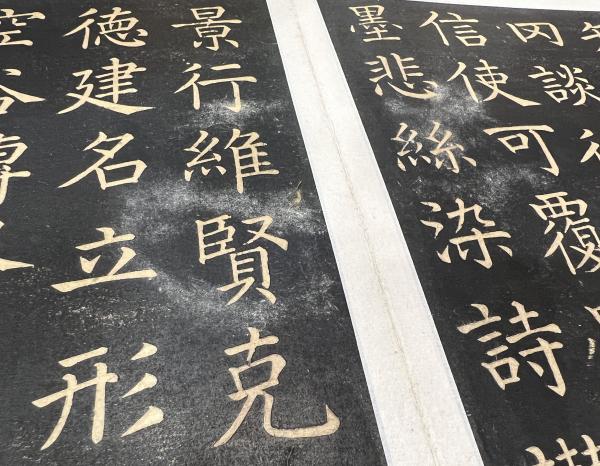 罔談
信使可覆
墨悲絲染詩
景行維賢克
德建名立形
空谷